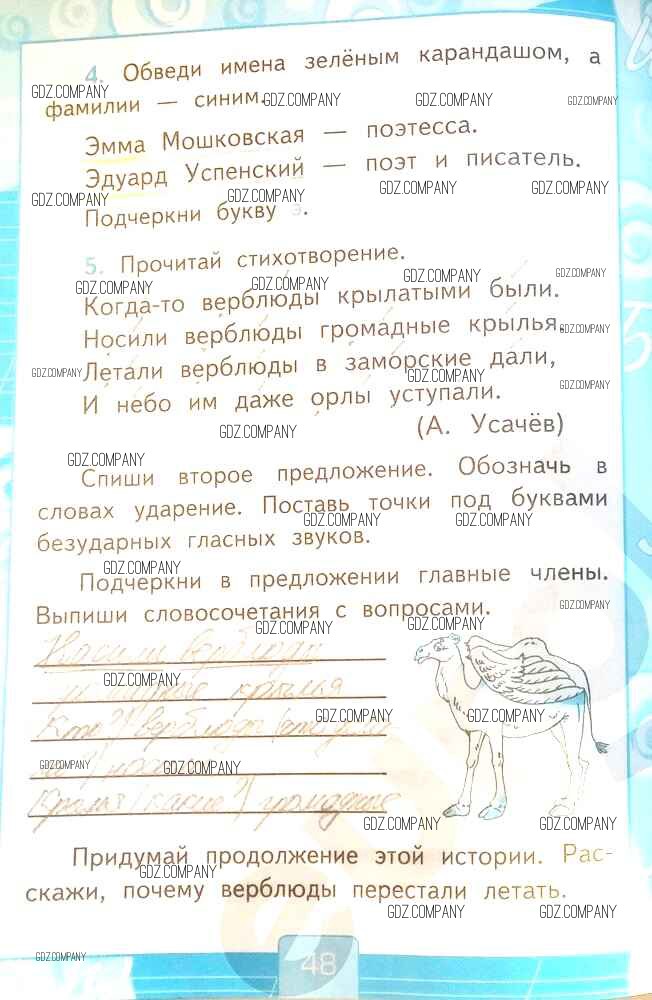 4. Обведи имена зелёным карандашом, а
фамилии — синим.
Эмма Мошковская — поэтесса.
Эдуард Успенский — поэт и писатель.
Подчеркни букву э.
5. Прочитай стихотворение.
Когда-то верблюды крылатыми были.
Носили верблюды громадные крылья.
Летали верблюды в заморские дали,
И небо им даже орлы уступали.
(А. Усачёв)
Спиши второе предложение. Обозначь в
словах ударение. Поставь точки под буквами
безударных гласных звуков.
Подчеркни в предложении главные члены.
Выпиши словосочетания с вопросами.
Носили верблюды
крылья
Кто? верблюды
громадные
Придумай продолжение этой истории. Рас-
скажи, почему верблюды перестали летать.
48
GDZ.COMPANY